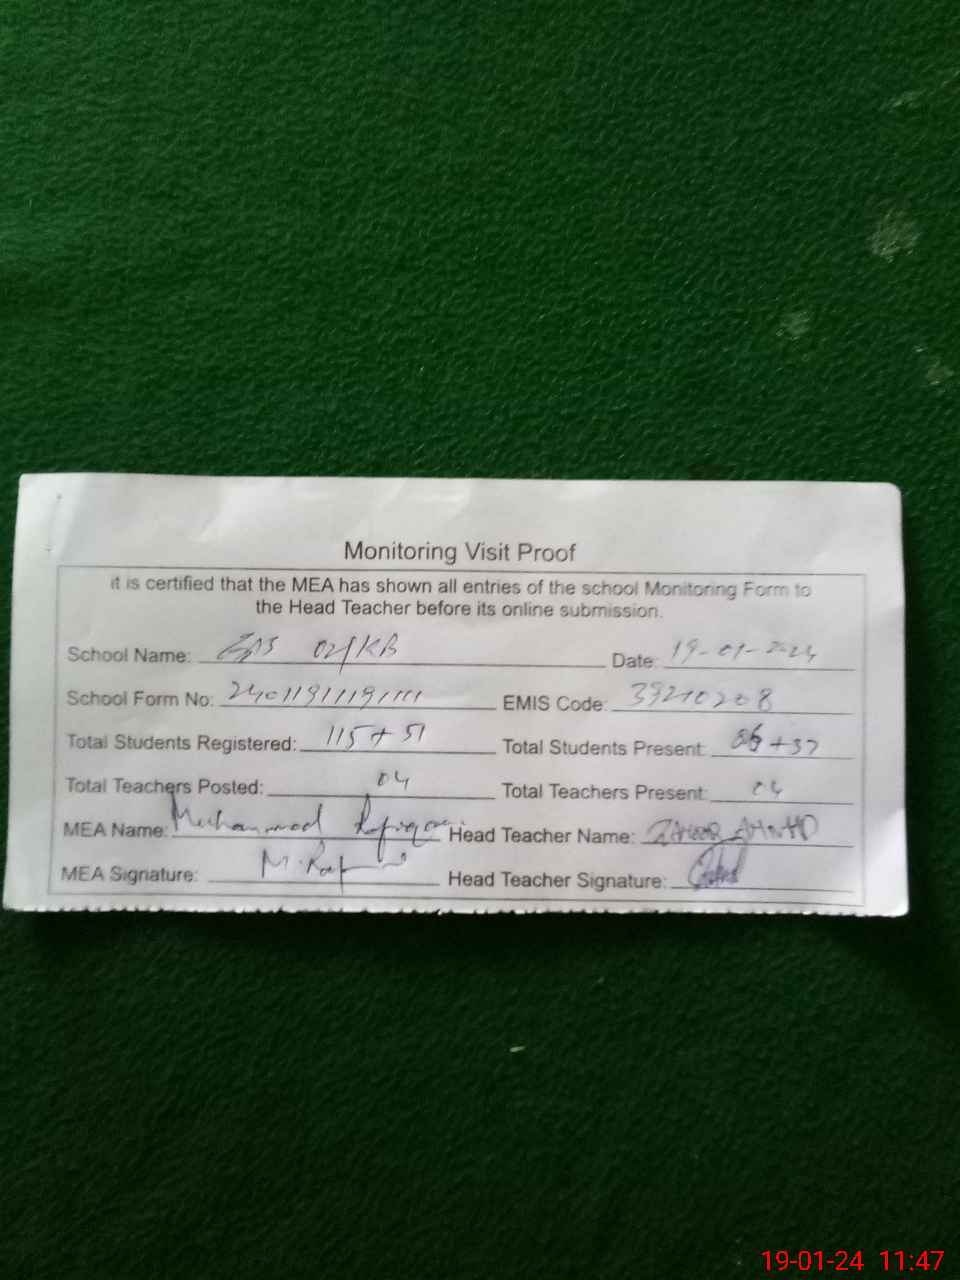 Monitoring Visit Proof
it is certified that the MEA has shown all entries of the school Monitoring Form to
the Head Teacher before its online submission.
School Name: 02/KB Date: 19-01-2024
School Form No: EMIS Code: 39210208
Total Students Registered: 115 + 51 Total Students Present: + 37
Total Teachers Posted: 04 Total Teachers Present: 04
MEA Name: Muhammad Head Teacher Name: ZAHOOR AHMAD
MEA Signature: Head Teacher Signature:
19-01-24 11:47